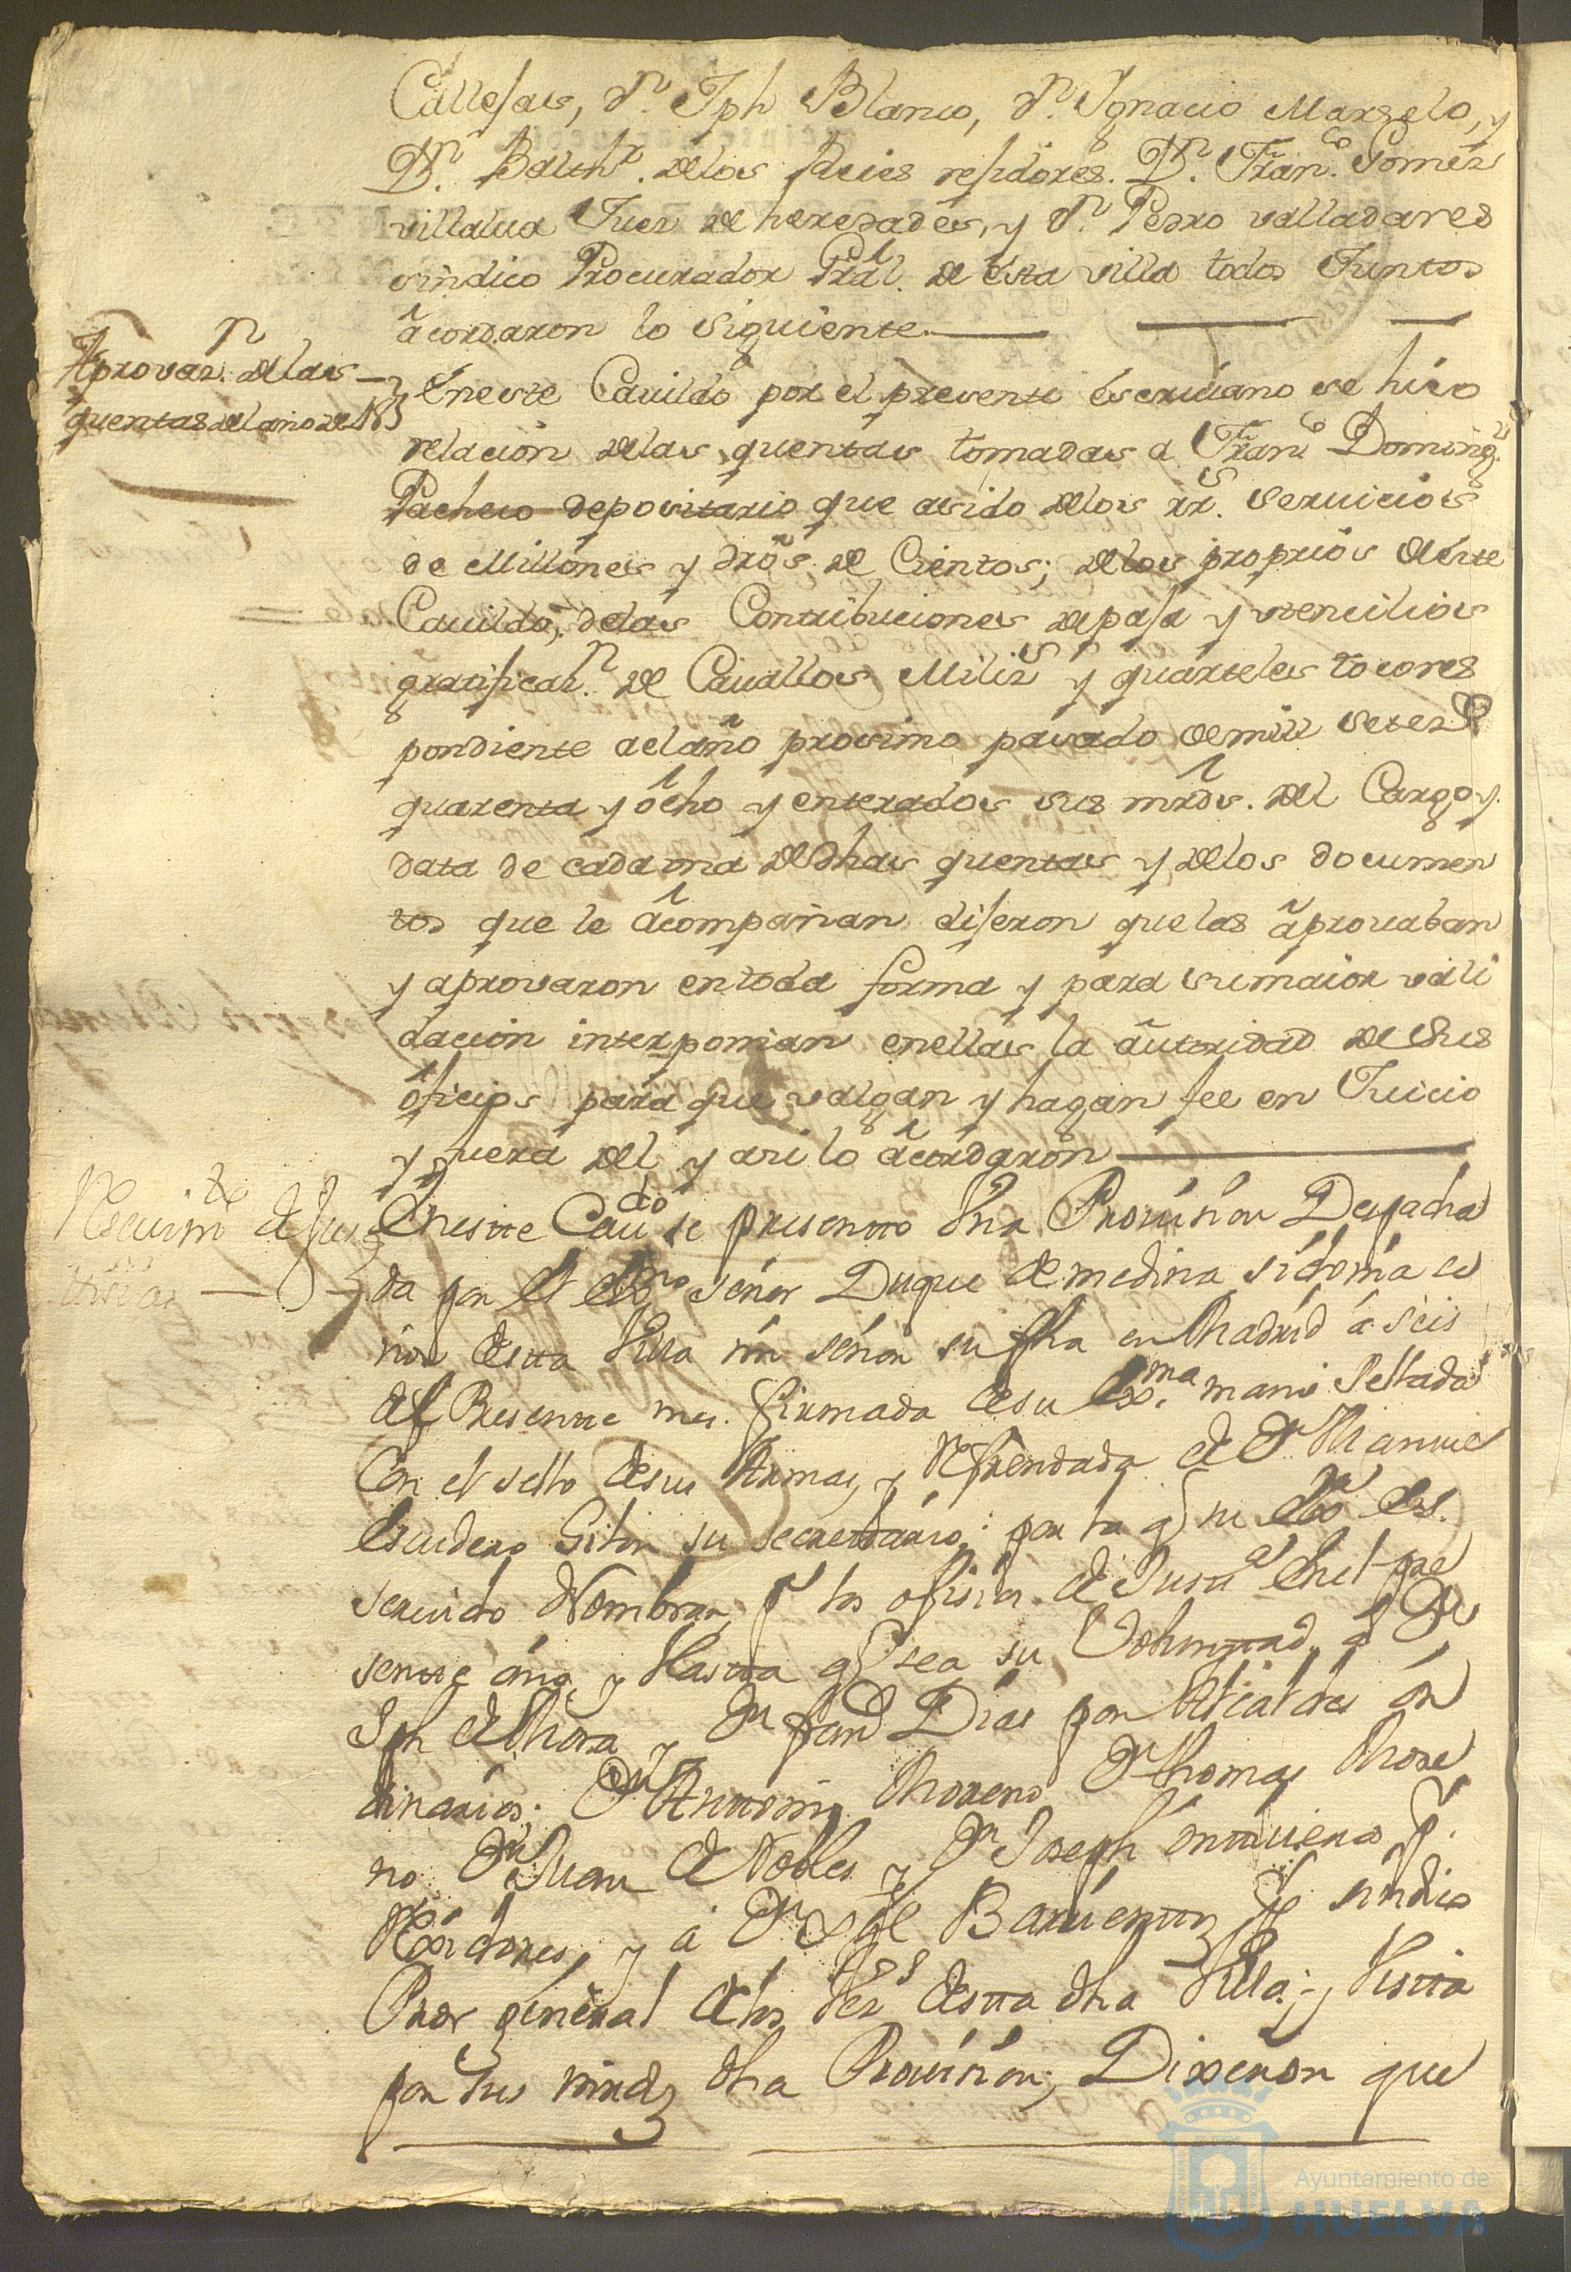 Callejas, Dn. Jph Blanco, Dn. Ignacio Marzelo, y
Dn. Balthr. de los Reies rejidores. Dn. Franco. Gomez
villalua Juez de heredades, y Dn. Pedro valladares
sindico Procurador Gral. de esta villa todos Juntos
acordaron lo siguiente.
Aprovazn. de las
quentas del año de 48
Eneste Cauildo por el presente escriuano se hizo
relacion de las quentas tomadas a Franco Doming.
Pacheco depositario que asido delos rrs. seruicios
de Millones y dros. de Cientos; delos proprios deste
Cauildo, delas Contribuciones depaja y utencilios
gratificazn. de Cauallos Miliz y quarteles tocorres
pondiente alaño prosimo pasado demill setezs
quarenta y ocho y enterados sus mrds. del Cargo y
data de cada una de dhas quentas y de los documen
tos que le acompañan dijeron que las aprouaban
y aprovaron entoda forma y para sumaior vali
dacion interponian enellas la autoridad de sus
oficios para que valgan y hagan fee en Juicio
y fuera del y asi lo acordaron
Reciuimto de Jus
ticias
Enestte Caudo se presentto Una Prouision Despacha
da por el Exmo señor Duque de medina sidonia se
ñor destta Villa mi señor su fha en Madrid a seis
del Presentte mes. firmada desu Exma. mano sellada
Con el sello desus Armas, y Refrendada de Dn Manuel
Escudero Gilon su secrettario; por la q su Exa es.
seruido Nombrar pa los ofisios de Justa enel pre
sentte año, y Hastta q sea su Voluntad, a Dn
Jph de Mora y Dn fernd Dias por Alcaldes or
dinarios; Dn Anttonio Moreno Dn thomas More
no Dn Juan de Robles y Dn Joseph onttiueros pr.
Rexidores, y a Dn Barrientos pr sindico
Pror general de los Vezs destta dha Villa; y Vistta
por sus mrds dha Prouision; Dixeron que
Ayuntamiento de
HUELVA